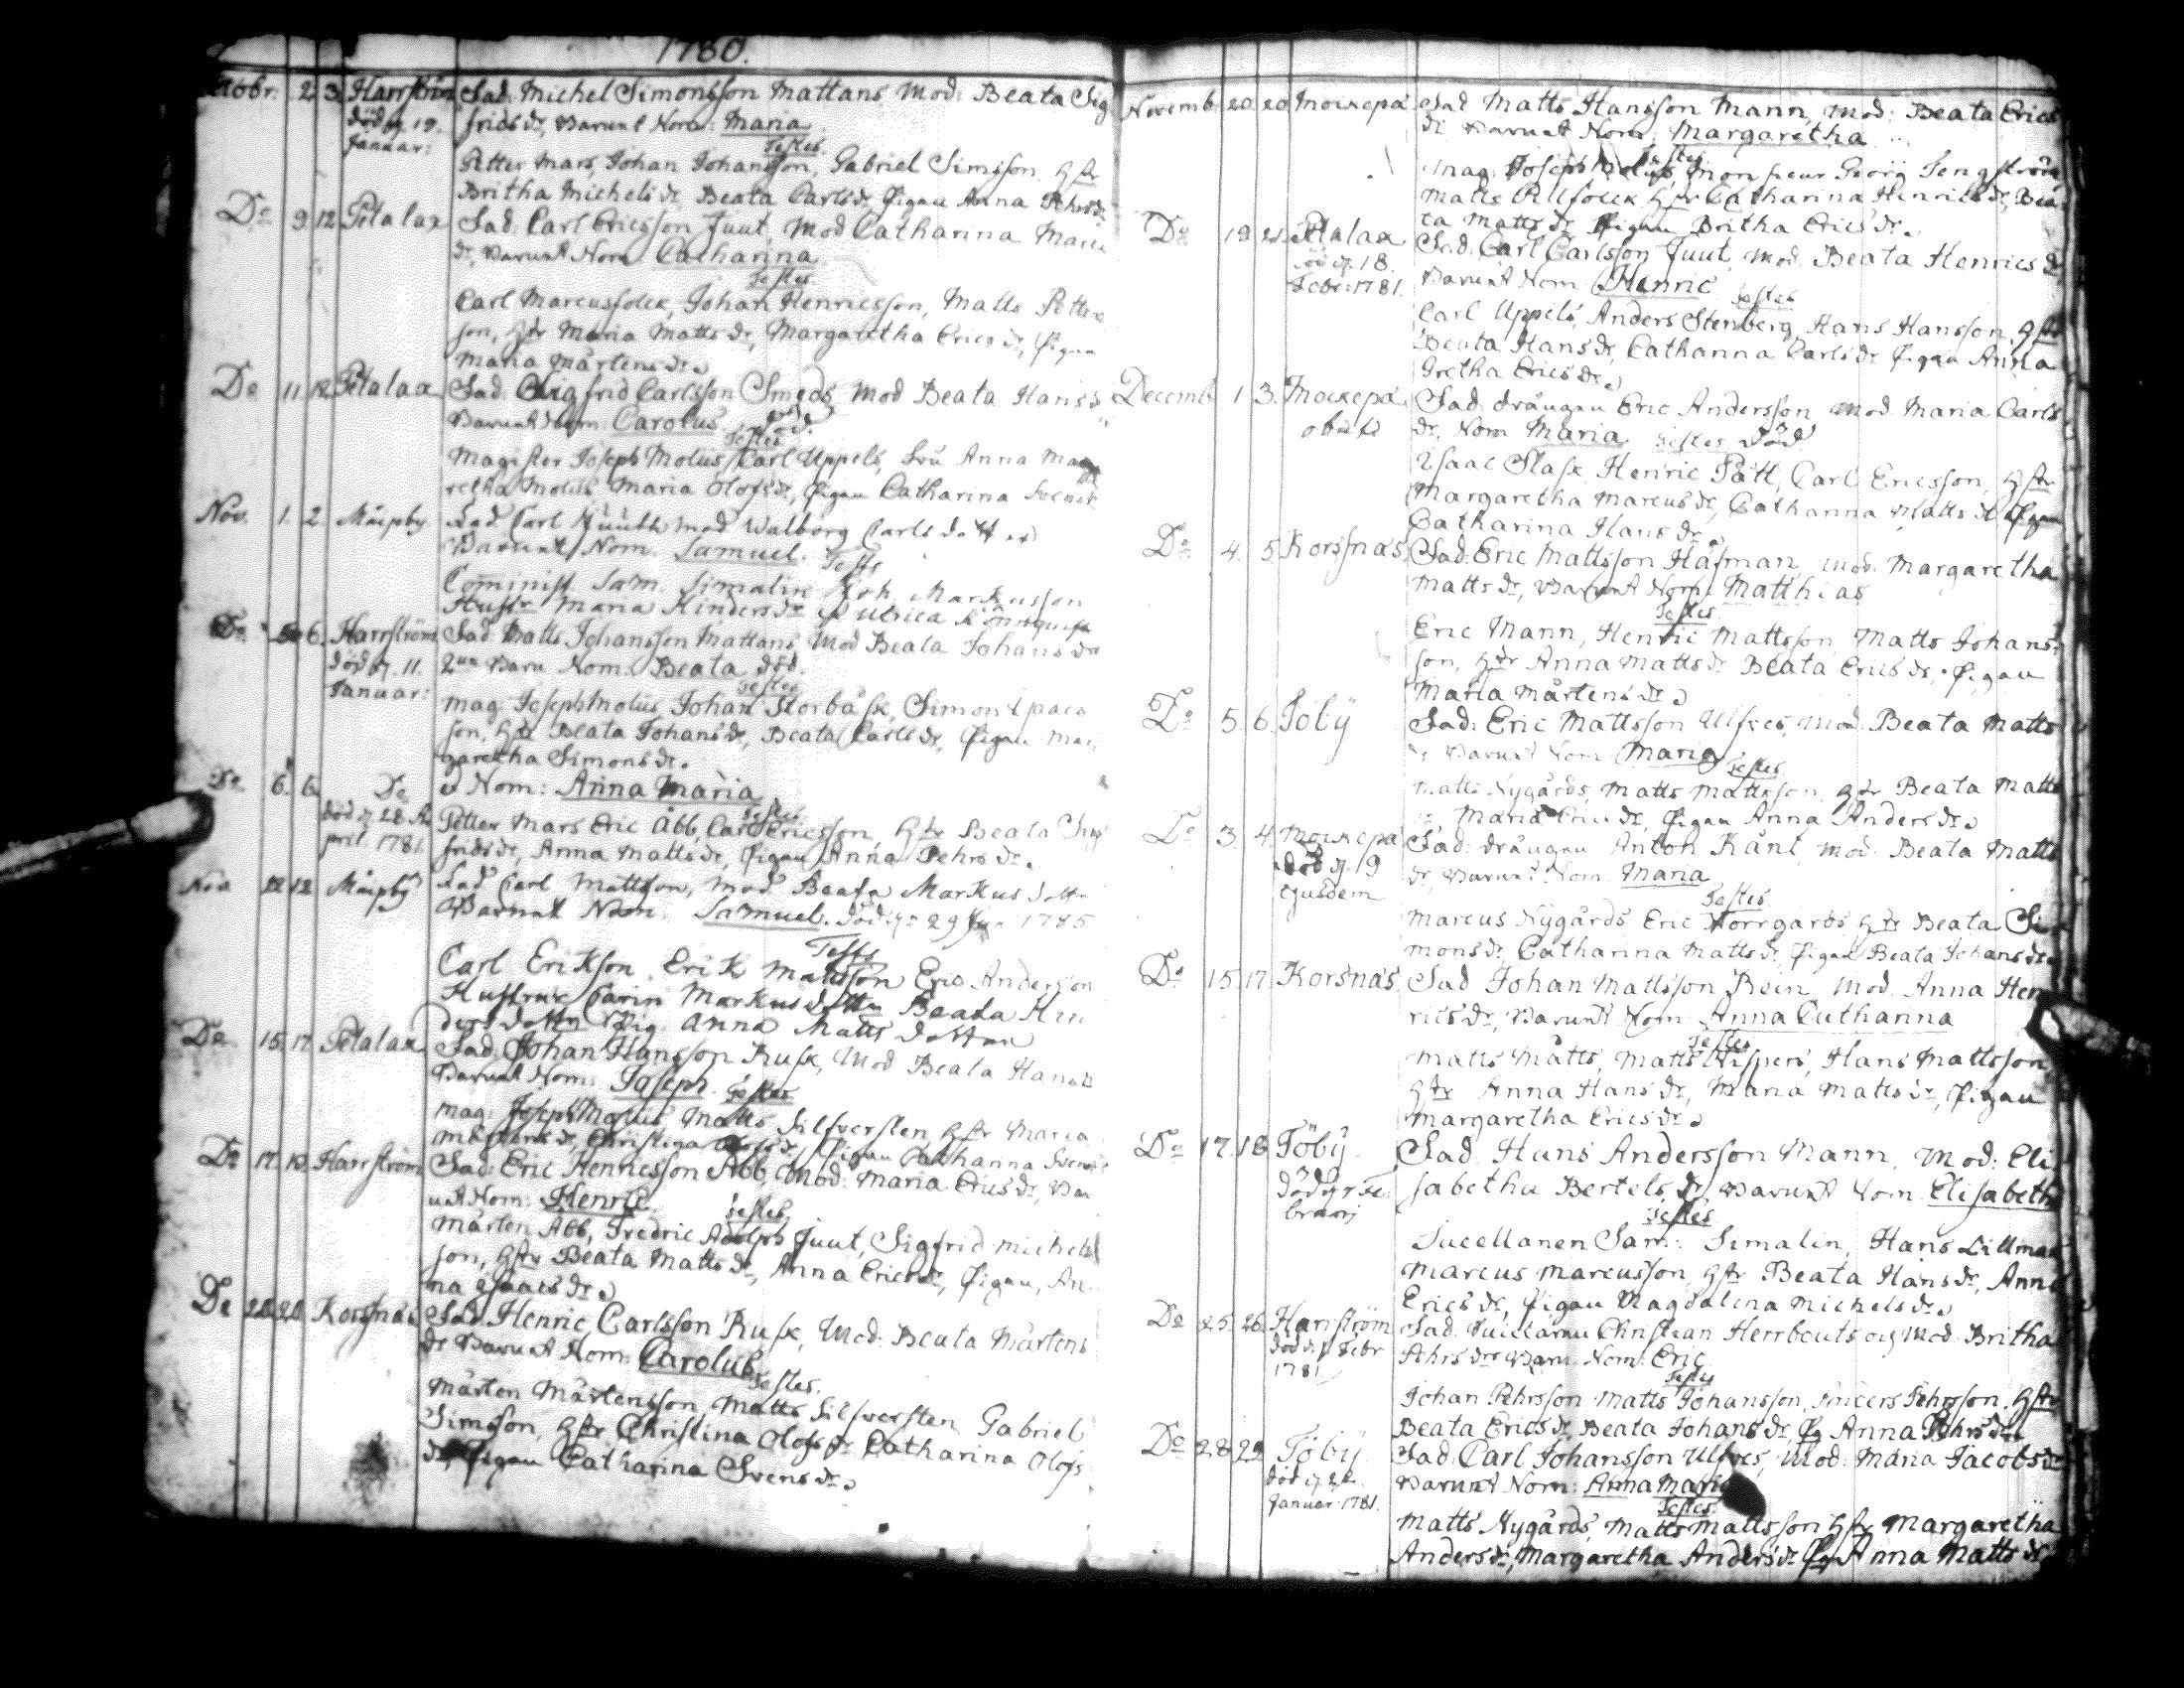 1780.
Octobr. 2 3 Harrström Fad. Michel Simonsson Mattans Mod: Beata Sig
död d. 19. frids dr, Barnet Nom: Maria
Januar: Testes
Petter Mars, Johan Johansson, Gabriel Simsson, Hstr
Britha Michels dr, Beata Carls dr Pigan Anna Pehrs dr
Do 9 12 Petalax Fad. Carl Ericsson Juut, Mod Catharina
dr, Barnet Nom Catharina
Testes
Carl Marcusfolck, Johan Henricsson, Matts Petters
son, Hstr Maria Matts dr, Margaretha Erics dr, Pigan
Maria Mårtens dr.
Do 11 12 Petalax Fad. Sigfrid Carlsson Smeds Mod Beata Hans d
Barnet Nom: Carolus död.
Testes
Magister Joseph Molius, Carl Uppels, Fru Anna Marga
retha Molius Maria Olofs dr, Pigan Catharina Svens d
Nov. 1. 2 Måspby Fad. Carl Hüübb mod Walborg Carls dotter
Barnet Nom. Samuel. Tests
Cominist Sam. Simalin Joh. Markusson
Hustr Maria Hinders dr Ulrica
Do 6. Harrström Fad. Matts Johansson Mattans, Mod Beata Johans dr
död d. 11. Barn Nom: Beata död
Januar: Testes
Mag: Joseph Molius Johan Storbåsk, Simon Isacs
son, Hstr Beata Johans dr, Beata Carls dr, Pigan Mar
garetha Simons dr.
Do. 6. 6 Do Nom: Anna Maria
Testes
död d 28 Ap Petter Mars Eric Abb, Carl Ericsson, Hstr Beata Sig
pril. 1781 frids dr, Anna Matts dr, Pigan Anna Pehrs dr.
Nov. 12 12 Måspby Fad Carl Mattson, mod Beata Markus dott
Barnet Nom. Samuel. död d. 29 1785
Tests
Carl Erikson, Erik Mattson Eric Anderson
Hustrur Carin Markus dotter Beata Hin
ders dotter Pig. Anna Matts dotter
Do. 15. 17 Petalax Fad. Johan Hansson Rusk, Mod Beata Hans d
Barnet Nom: Joseph. Testes
Mag: Joseph Molius Matts Silfversten, Hstr Maria
Mårtens dr, Christina Olofs dr Pigan Catharina Svens
Do 17. 19. Harrström Fad: Eric Henricsson Abb, Mod: Maria Erics dr, Bar
net Nom: Henric
Testes
Mårten Abb, Fredric Adolph Juut, Sigfrid Michels
son, Hstr Beata Matts dr, Anna Erics dr, Pigan, An-
na Isaacs dr.
Do 20. 20 Korsnäs Fad. Henric Carlsson Rusk, Mod: Beata Mårtens
dr Barnet Nom: Carolus
Testes.
Mårten Mårtensson Matts Silfversten Gabriel
Simsson, Hstr Christina Olofs dr Catharina Olofs
dr, Pigan Catharina Svens dr.
Novemb. 20 20 Moikepä Fad Matts Hansson Mann, Mod: Beata Erics
dr Barnet Nom: Margaretha
Testes
Mag. Joseph Molius, Monsieur Georg Tengström
Matts Hstr Catharina Henrics dr, Bea
ta Matts dr Pigan Britha Erics dr.
Do 19 21 Petalax Fad. Carl Carlsson Juut, Mod. Beata Henrics d
död d. 18. Barnet Nom: Henric
Febr: 1781. Testes
Carl Uppels, Anders Stenberg, Hans Hansson, Hstr
Beata Hans dr, Catharina Carls dr Pigan Anna
Gretha Erics dr.
Decemb. 1 3. Moikepä Fad: drängen Eric Andersson Mod. Maria Carls
obiit dr, Nom Maria Testes död
Isaac Slask, Henric Pått, Carl Ericsson, Hstr
Margaretha Marcus dr, Catharina Matts dr Pigan
Catharina Hans dr.
Do 4. 5 Korssnäs Fad: Eric Mattsson Håfman, Mod. Margaretha
Matts dr, Barnet Nom: Matthias
Testes
Eric Mann, Henric Mattsson, Matts Johans
son, Hstr Anna Matts dr Beata Erics dr, Pigan
Maria Mårtens dr.
Do 5. 6. Töby Fad: Eric Mattsson Ulfves, Mod: Beata Matts
dr Barnet Nom: Maria
Testes
Matts Nygårds, Matts Mattsson, Hstr Beata Matts
Maria Erics dr, Pigan Anna Anders dr.
Do 3. 4. Moikepä Fad: drängen Anton Kånt, Mod: Beata Matts
död d. 19 dr, Barnet Nom: Maria
ejusdem Testes
Marcus Nygårds Eric Norrgårds, Hstr Beata Si
mons dr, Catharina Matts dr Pigan Beata Johans dr
Do 15 17 Korsnäs Fad Johan Mattsson Rein, Mod. Anna Hen
rics dr, Barnet Nom Anna Catharina
Testes
Matts Mätts, Matts Hispers, Hans Mattsson
Hstr Anna Hans dr, Maria Matts dr, Pigan
Margaretha Erics dr.
Do 17. 18 Töby Fad. Hans Andersson Mann, Mod: Eli
sabetha Bertels dr, Barnet Nom. Elisabeth
Testes
Sacellanen Sam: Simalin, Hans Lillman
Marcus Marcusson, Hstr Beata Hans dr, Anna
Erics dr, Pigan Magdalena Michels dr.
Do 25. 26. Harrström Fad: Christian Herrbouts Mod: Britha
död d. 1 Febr Pehrs dr Barn: Nom: Eric
1781 Testes
Johan Pehrsson Matts Johansson, Anders Pehrsson, Hstr
Beata Erics dr, Beata Johans dr, Pig Anna Pehrs dr.
Do 28 29 Töby Fad. Carl Johansson Ulfves, Mod: Maria Jacobs dr
död d. 22 Barnet Nom: Anna Maria
Januar: 1781. Testes.
Matts Nygårds, Matts Mattsson Hstr Margaretha
Anders dr, Margaretha Anders dr Pig Anna Matts dr